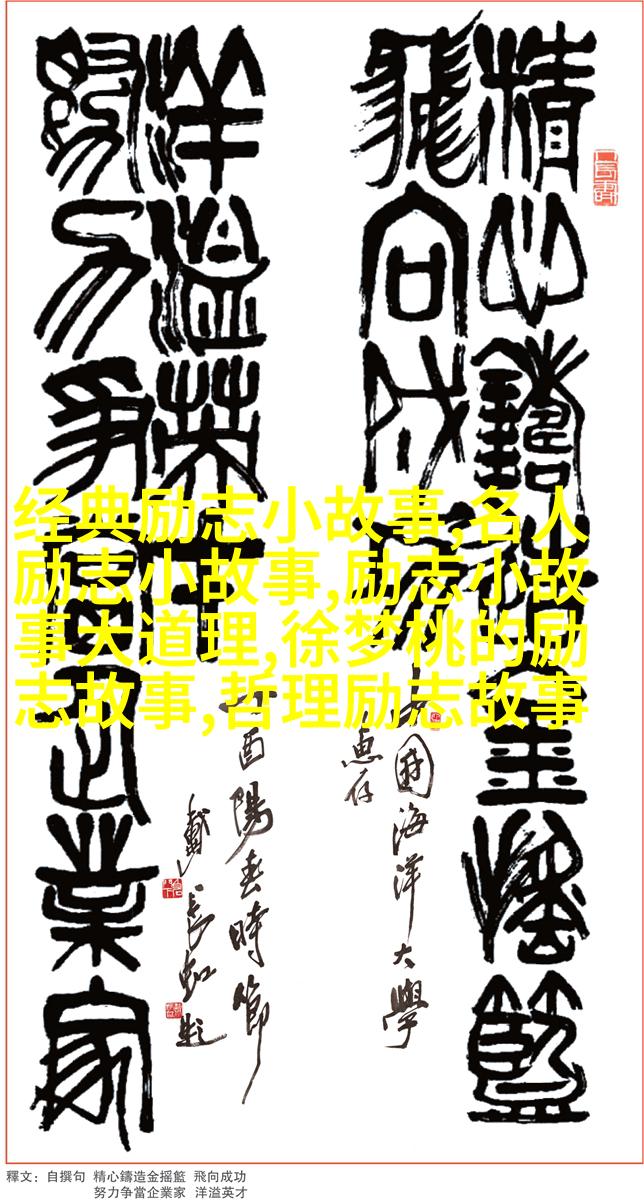 精心鑄造金摇籃
飛向成功
中國海洋大學
惠存
洋溢英才
努力争當企業家
酉陽春時節
戴長虹題
经典励志小故事,名人
励志小故事,励志小故
事大道理,徐梦桃的励
志故事,哲理励志故事
釋文：自撰句 精心鑄造金摇籃 飛向成功
努力争當企業家 洋溢英才